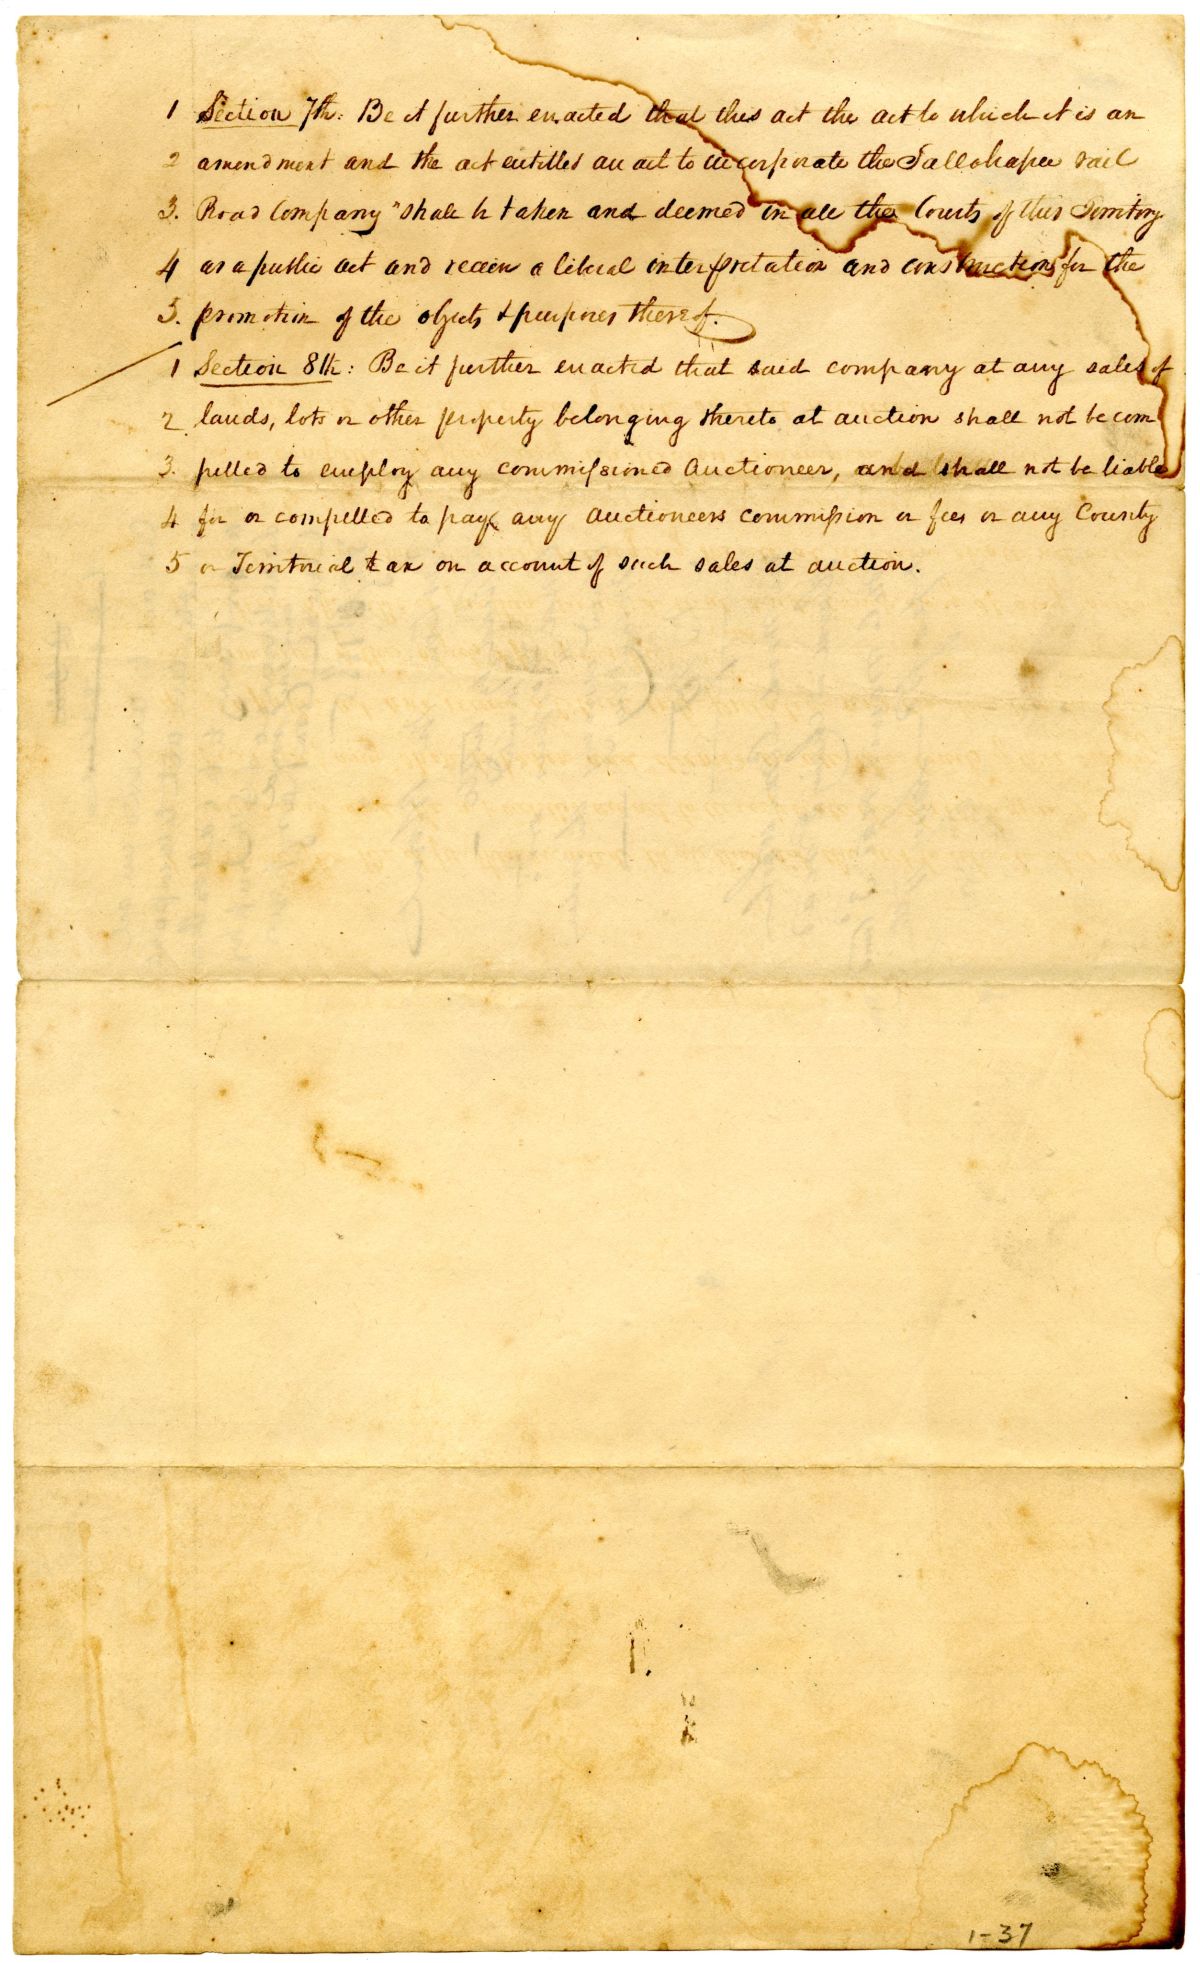 1 Section 7th: Be it further enacted that this act the act to which it is an
2 amendment and the act entitled an act to incorporate the Tallahassee rail
3. Road Company" shall be taken and deemed in all the Courts of this Territory
4 as a public act and receive a liberal interpretation and constructions for the
5. promotion of the objects & purposes thereof.
1 Section 8th: Be it further enacted that said company at any sales of
2 lands, lots or other property belonging thereto at auction shall not be com
3. pelled to employ any commissioned Auctioneer, and shall not be liable
4 for or compelled to pay any Auctioneers commission or fees or any County
5 or Territorial tax on account of such sales at auction.
1-37